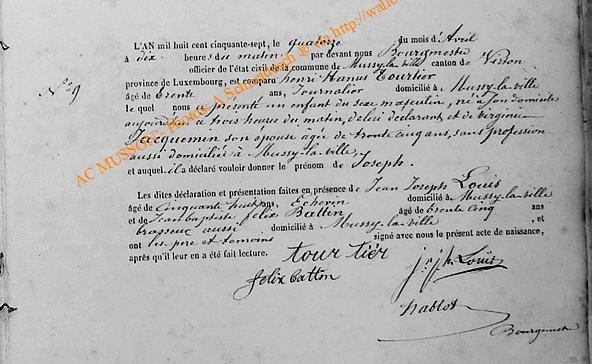 L'AN mil huit cent cinquante-sept, le quatorze du mois d'Avril
à dix heures du matin par devant nous Bourgmestre
officier de l'état civil de la commune de Mussy-la-ville canton de Virton
N° 9
province de Luxembourg, est comparu henri Hanus Tourtier
âgé de trente ans, Journalier domicilié à Mussy-la-ville
lequel nous a présenté un enfant du sexe masculin, né à son domicile
aujourd'hui à trois heures du matin, de lui déclarant et de Virginie
Jacquemin son épouse âgée de trente cinq ans, sans profession
aussi domiciliée à Mussy-la-ville,
et auquel il a déclaré vouloir donner le prénom de Joseph.
Les dites déclaration et présentation faites en présence de Jean Joseph Louis
âgé de cinquante huit ans, Echevin domicilié à Mussy-la-ville
et de Jean baptiste félix Battin âgé de trente cinq ans
brasseur aussi domicilié à Mussy-la-ville, et
ont les père et témoins signé avec nous le présent acte de naissance,
après qu'il leur en a été fait lecture.
tour tiér
felix batton
j. j. h. Louis
Bourgmestre
AC MUSSON - Photos: A Schmidtbach @ via http://wallo